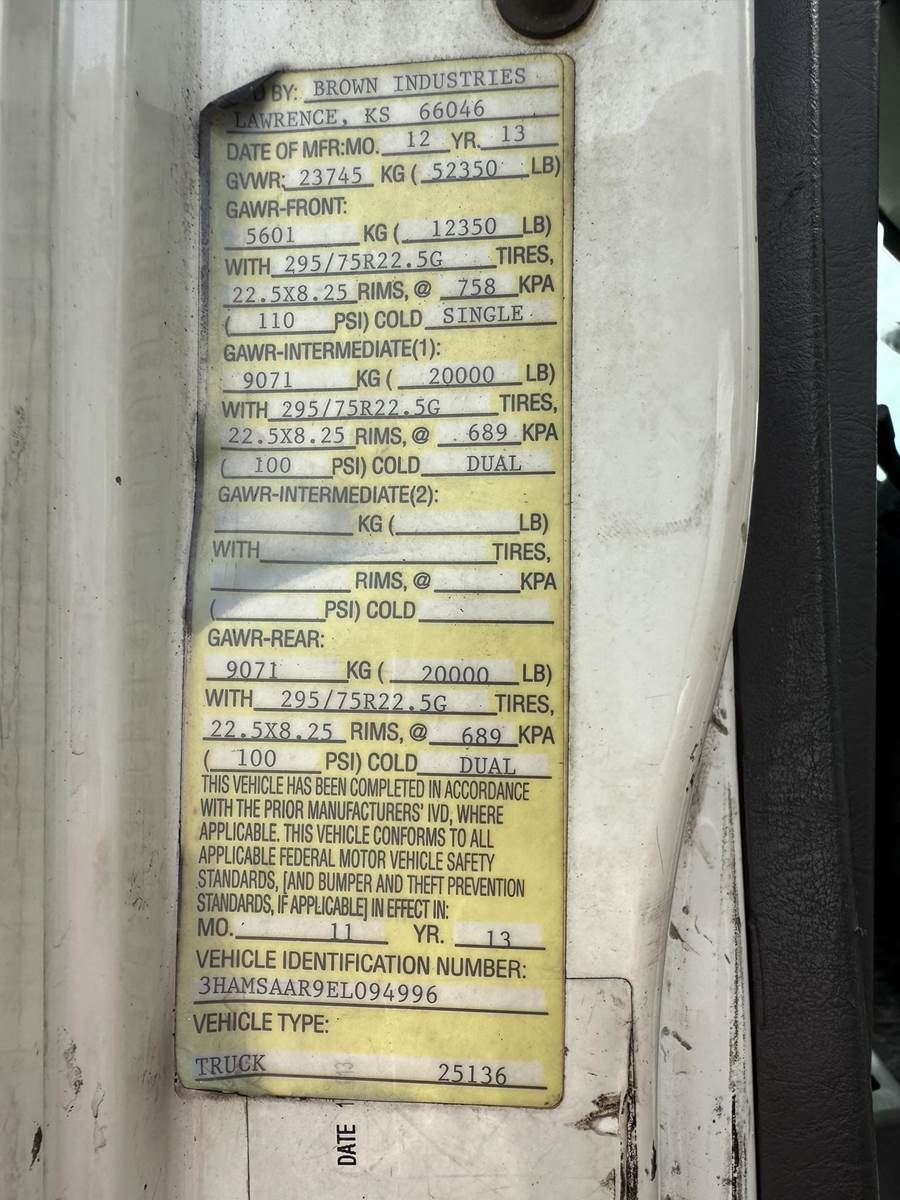 BY: BROWN INDUSTRIES
LAWRENCE, KS 66046
DATE OF MFR:MO. 12 YR. 13
GVWR: 23745 KG ( 52350 LB)
GAWR-FRONT:
5601 KG ( 12350 LB)
WITH 295/75R22.5G TIRES,
22.5X8.25 RIMS, @ 758 KPA
( 110 PSI) COLD SINGLE
GAWR-INTERMEDIATE(1):
9071 KG ( 20000 LB)
WITH 295/75R22.5G TIRES,
22.5X8.25 RIMS, @ 689 KPA
( 100 PSI) COLD DUAL
GAWR-INTERMEDIATE(2):
KG ( LB)
WITH TIRES,
RIMS, @ KPA
( PSI) COLD
GAWR-REAR:
9071 KG ( 20000 LB)
WITH 295/75R22.5G TIRES,
22.5X8.25 RIMS, @ 689 KPA
( 100 PSI) COLD DUAL
THIS VEHICLE HAS BEEN COMPLETED IN ACCORDANCE
WITH THE PRIOR MANUFACTURERS' IVD, WHERE
APPLICABLE. THIS VEHICLE CONFORMS TO ALL
APPLICABLE FEDERAL MOTOR VEHICLE SAFETY
STANDARDS, [AND BUMPER AND THEFT PREVENTION
STANDARDS, IF APPLICABLE] IN EFFECT IN:
MO. 11 YR. 13
VEHICLE IDENTIFICATION NUMBER:
3HAMSAAR9EL094996
VEHICLE TYPE:
TRUCK 25136
DATE